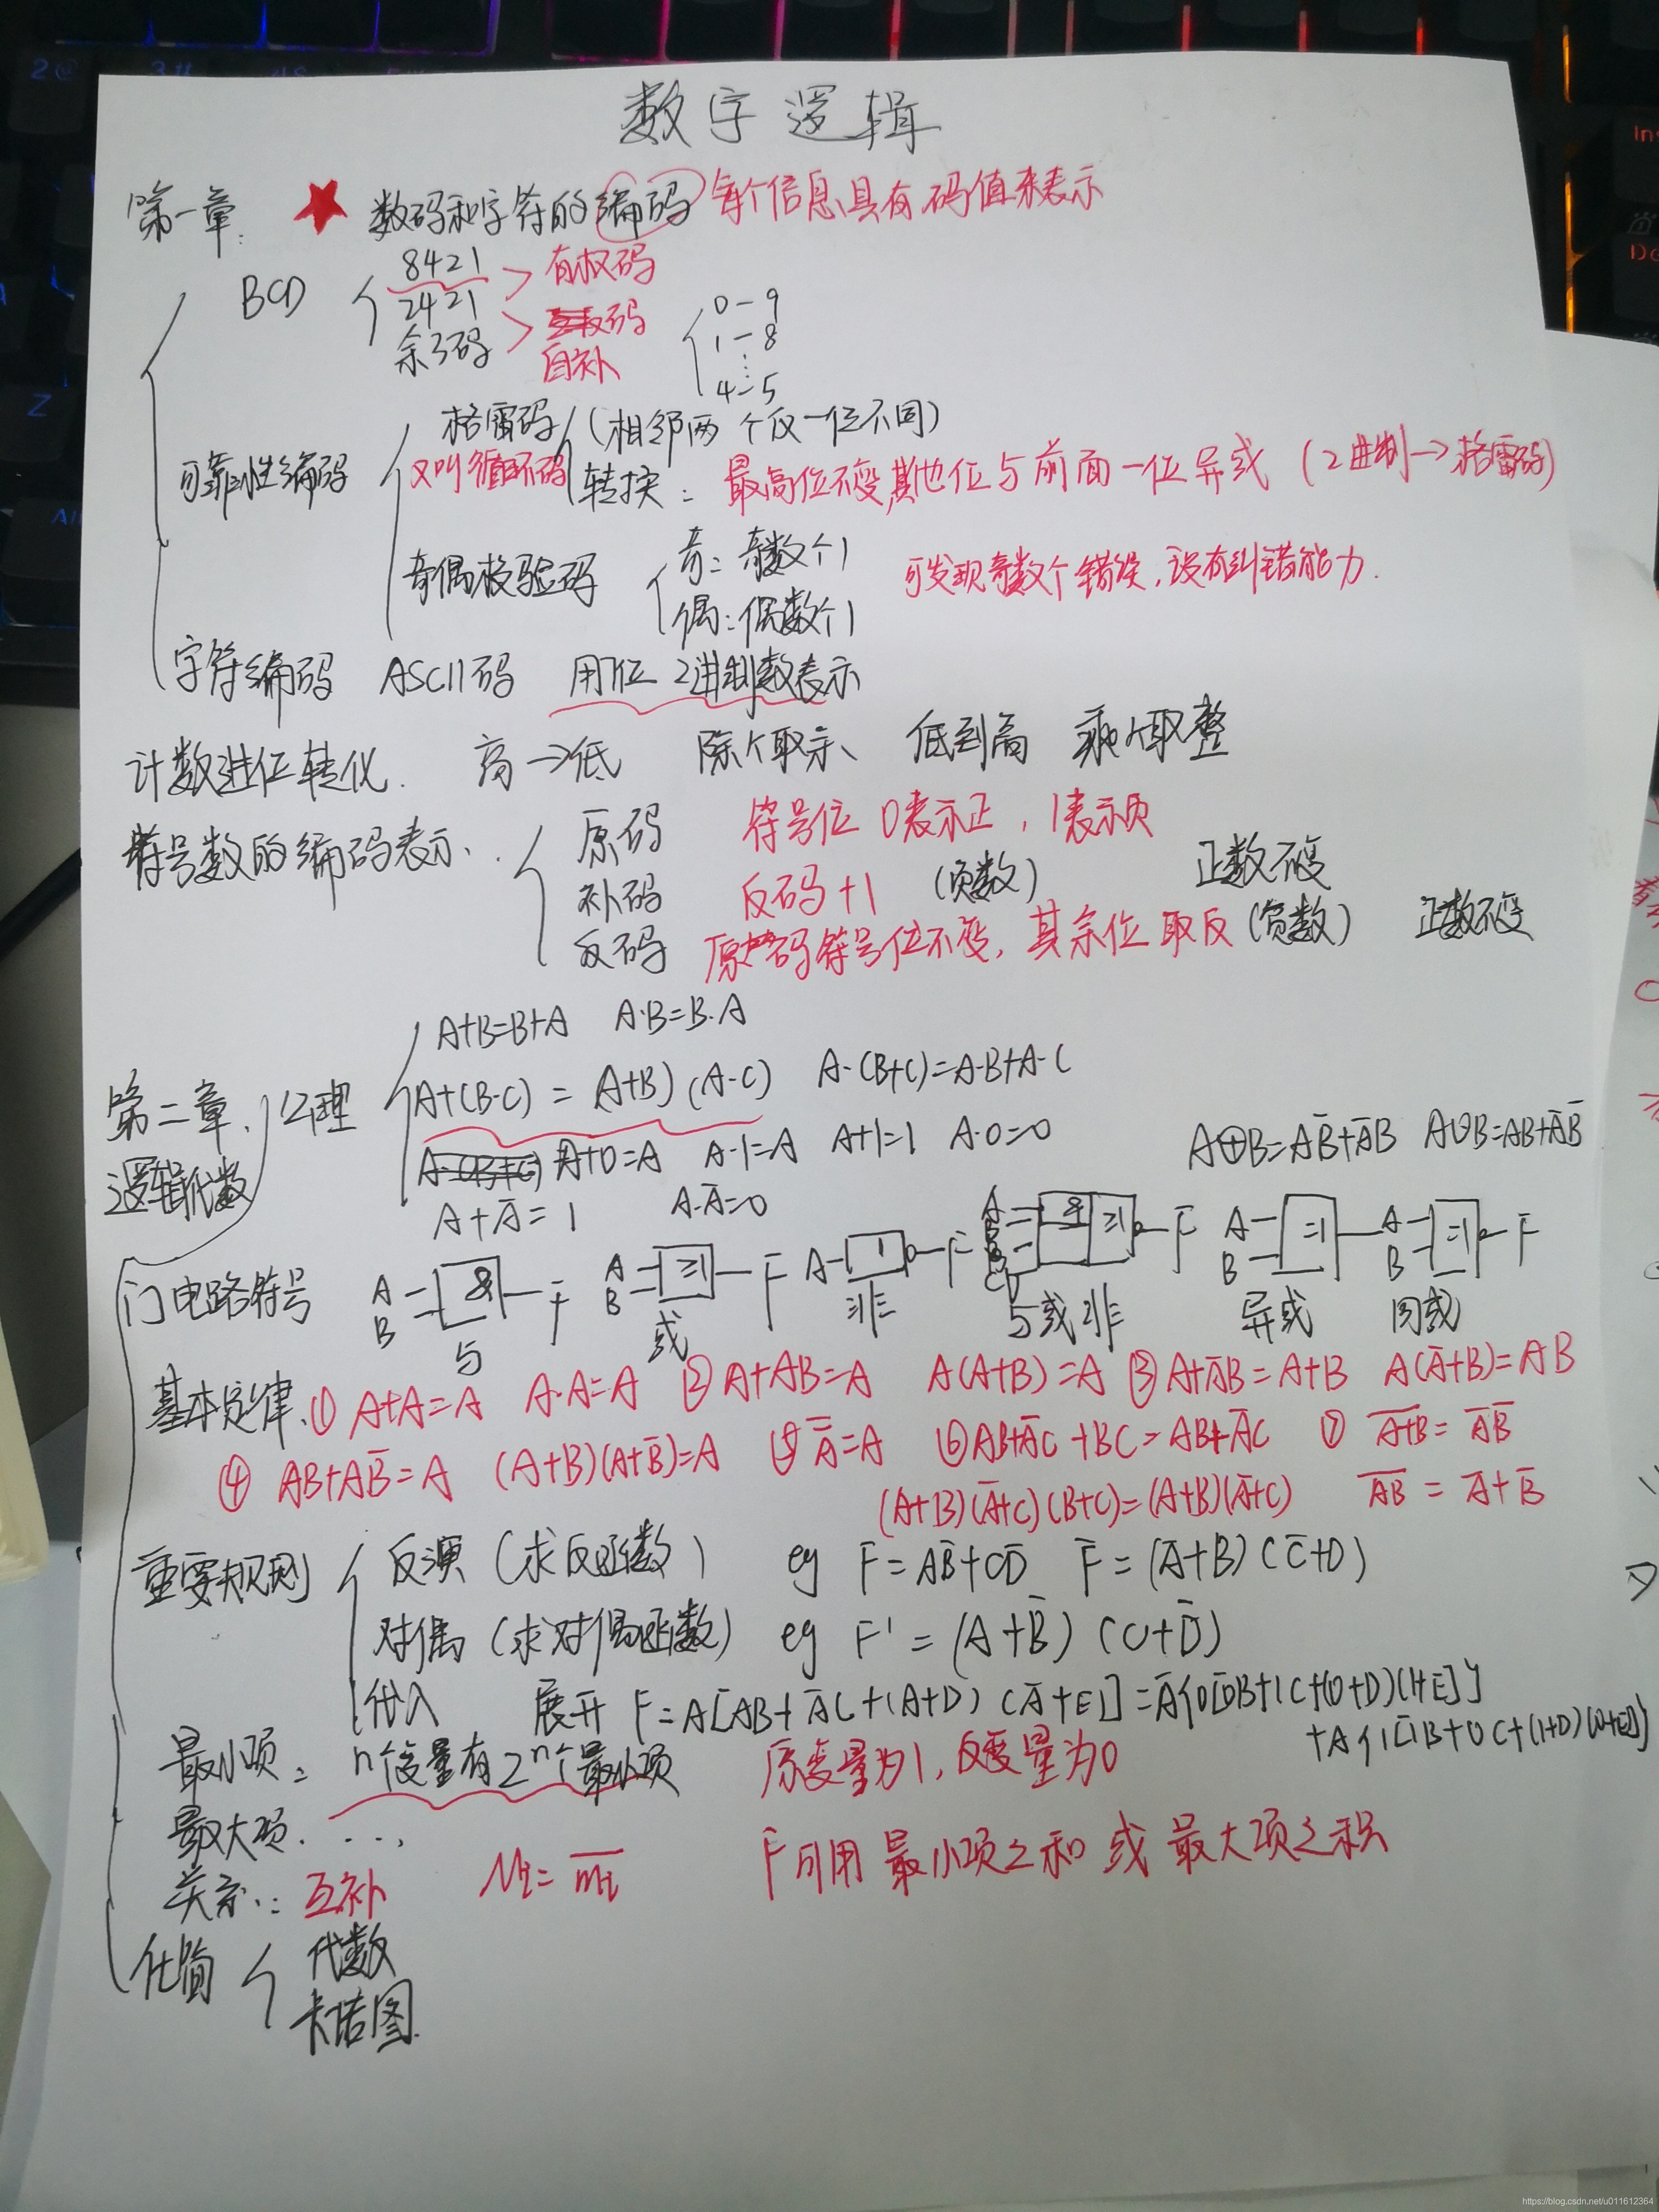 数字逻辑
第一章. ★ 数码和字符的编码 每个信息具有码值来表示
BCD
8421
2421 > 有权码
余3码 > 码
自补
0-9
1-8
⋮
4-5
可靠性编码
格雷码 (相邻两个仅一位不同)
又叫循环码 转换: 最高位不变,其他位与前面一位异或 (2进制→格雷码)
奇偶校验码
奇: 奇数个1
偶: 偶数个1
可发现奇数个错误,没有纠错能力.
字符编码 ASCII码 用7位 2进制数表示
计数进位转化. 高→低 除个取余、 低到高 乘个取整
符号数的编码表示.
原码 符号位 0表示正, 1表示负
补码 反码+1 (负数) 正数不变
反码 原码符号位不变, 其余位取反 (负数) 正数不变
第二章. 公理
逻辑代数
A+B=B+A A·B=B·A
A+(B·C) = (A+B) (A·C) A·(B+C)=A·B+A·C
A+0=A A·1=A A+1=1 A·0=0
A+A̅=1 A·A̅=0
A⊕B=AB̅+A̅B A⊙B=AB+A̅B̅
门电路符号
A B & F 与
A B ≥1 F 或
A 1 F 非
A B C D & ≥1 F 与或非
A B =1 异或
A B =1 F 同或
基本定律. ① A+A=A A·A=A ② A+AB=A A(A+B)=A ③ A+A̅B=A+B A(A̅+B)=AB
④ AB+AB̅=A (A+B)(A+B̅)=A ⑤ A̅̅=A ⑥ AB+A̅C+BC=AB+A̅C ⑦ \overline{A+B}=A̅B̅
(A+B)(A̅+C)(B+C)=(A+B)(A̅+C) \overline{AB}=A̅+B̅
重要规则
反演 (求反函数) eg F=AB̅+CD̅ F̅=(A̅+B)(C̅+D)
对偶 (求对偶函数) eg F'=(A+B̅)(C+D̅)
代入 展开 F=A[AB+A̅C+(A+D)(A̅+E)]=A̅{0[0B+1C+(0+D)(1+E)]}
+A{1[1B+0C+(1+D)(0+E)]}
最小项: n个变量有2ⁿ个最小项 原变量为1, 反变量为0
最大项. ...
关系: 互补 Mi=\overline{mi} F可用 最小项之和 或 最大项之积
化简
代数
卡诺图.
https://blog.csdn.net/u011612364